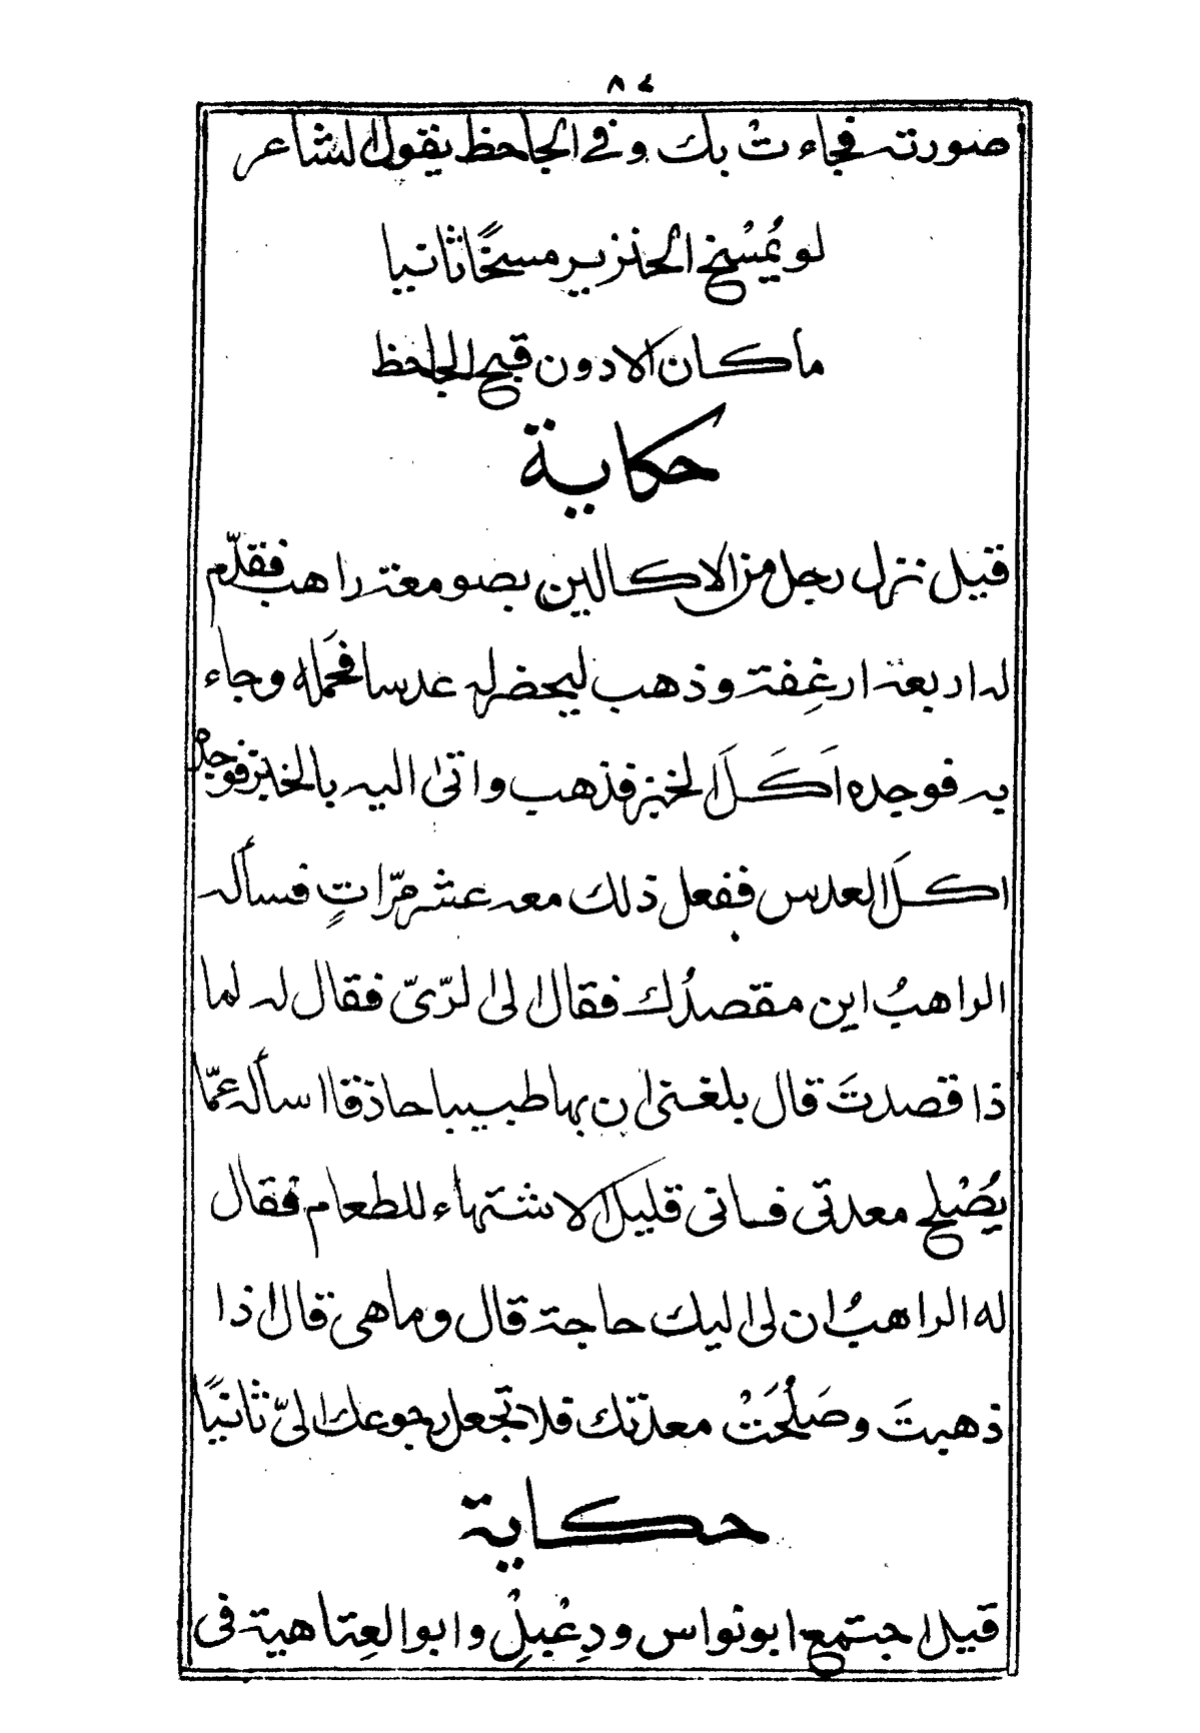 ٨٤
صورته فجاءت بك وفي الجاحظ يقول الشاعر
لو يُمْسَخ الخنزير مسخًا ثانيا
ما كان الا دون قبح الجاحظ
حكاية
قيل نزل رجل من الاكالين بصومعة راهب فقدّم
له اربعة ارغِفة وذهب ليحضر له عدسا فحَمله وجاء
به فوجده اَكَلَ الخبز فذهب واتى اليه بالخبز فوجده
اكلَ العدس ففعل ذلك معه عشر مرّاتٍ فسأله
الراهبُ اين مقصدُك فقال الى الرّيّ فقال له لما
ذا قصدتَ قال بلغنى ان بها طبيبا حاذقا اسأله عمّا
يُصْلح معدتى فانى قليل الاشتهاء للطعام فقال
له الراهبُ ان لى اليك حاجة قال وما هى قال اذا
ذهبتَ وصَلُحَتْ معدتك فلا تجعل رجوعك الىّ ثانيًا
حكاية
قيل اجتمع ابو نواس ودِعْبِلٌ وابو العِتاهية فى